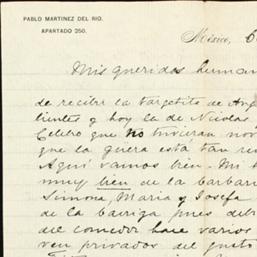 PABLO MARTINEZ DEL RIO.
APARTADO 250.
México, 6
Mis queridos herman
de recibir la targetita de Ang
lientes y hoy la de Nicolas
Celebro que no tuvieran nov
que la güera está tan re
Aquí vamos bien. Mi t
muy bien de la barba
Simona, Maria y Josefa
de la barriga pues deb
del comedor hace varios
ven privados del gusto